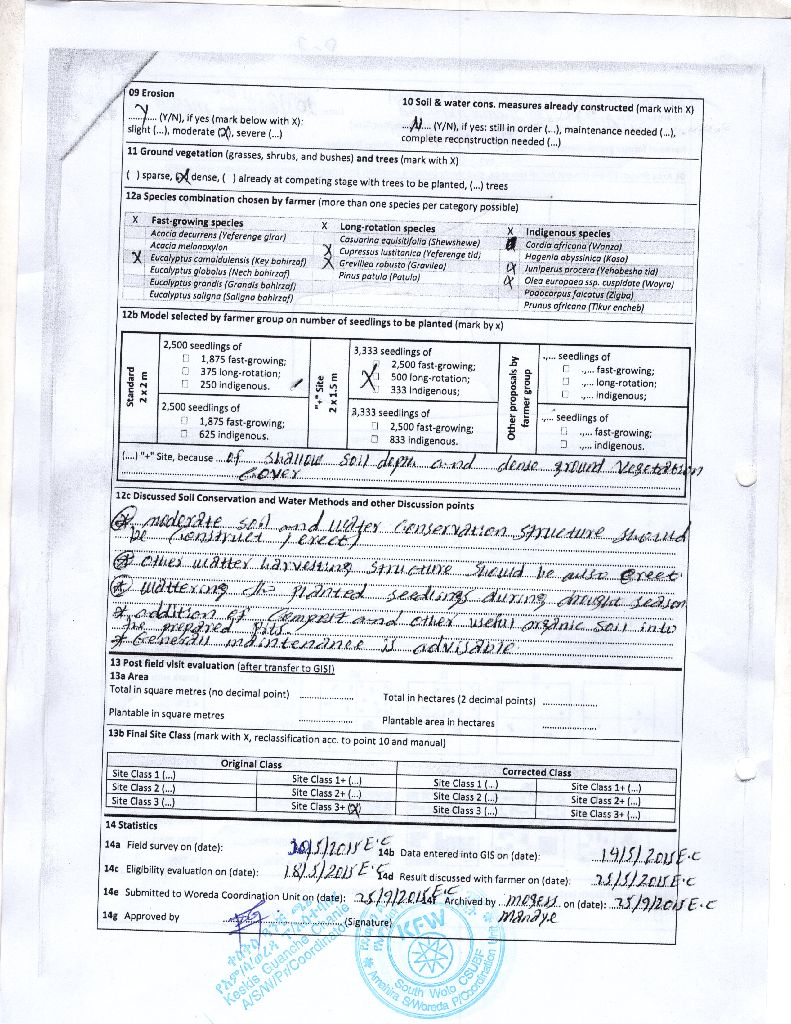 09 Erosion
Y (Y/N), if yes (mark below with X):
slight (...), moderate (X), severe (...)
10 Soil & water cons. measures already constructed (mark with X)
...N... (Y/N), if yes: still in order (...), maintenance needed (...),
complete reconstruction needed (...)
11 Ground vegetation (grasses, shrubs, and bushes) and trees (mark with X)
( ) sparse, (X) dense, ( ) already at competing stage with trees to be planted, (...) trees
12a Species combination chosen by farmer (more than one species per category possible)
X Fast-growing species
Acacia decurrens (Yeferenge girar)
Acacia melanoxylon
X Eucalyptus camaldulensis (Key bahirzaf)
Eucalyptus globolus (Nech bahirzaf)
Eucalyptus grandis (Grandis bahirzaf)
Eucalyptus saligna (Saligna bahirzaf)
X Long-rotation species
Casuarina equisitifolia (Shewshewe)
X Cupressus lustitanica (Yeferenge tid)
X Grevillea robusta (Gravilea)
Pinus patula (Patula)
X Indigenous species
Cordia africana (Wanza)
Hagenia abyssinica (Koso)
X Juniperus procera (Yehabesha tid)
X Olea europaea ssp. cuspidata (Wayra)
Podocarpus falcatus (Zigba)
Prunus africana (Tikur encheb)
12b Model selected by farmer group on number of seedlings to be planted (mark by x)
Standard
2 x 2 m
2,500 seedlings of
1,875 fast-growing;
375 long-rotation;
250 indigenous.
2,500 seedlings of
1,875 fast-growing;
625 indigenous.
"+" Site
2 x 1.5 m
3,333 seedlings of
2,500 fast-growing;
X 500 long-rotation;
333 indigenous;
3,333 seedlings of
2,500 fast-growing;
833 indigenous.
Other proposals by
farmer group
.,... seedlings of
.,... fast-growing;
.,... long-rotation;
.,... indigenous;
.,... seedlings of
.,... fast-growing;
.,... indigenous.
(....) "+" Site, because of shallow soil depth and dense ground vegetation
cover
12c Discussed Soil Conservation and Water Methods and other Discussion points
* moderate soil and water conservation structure should
be (construct / erect)
* other watter harvesting structure should be also erect
* wattering the planted seedlings during drought season
* addition of compost and other useful organic soil into
the prepared pits.
* Generall maintenance is advisable
13 Post field visit evaluation (after transfer to GIS!)
13a Area
Total in square metres (no decimal point) ..................
Total in hectares (2 decimal points) ..................
Plantable in square metres ..................
Plantable area in hectares ..................
13b Final Site Class (mark with X, reclassification acc. to point 10 and manual)
Original Class
Corrected Class
Site Class 1 (...) Site Class 1+ (...) Site Class 1 (...) Site Class 1+ (...)
Site Class 2 (...) Site Class 2+ (...) Site Class 2 (...) Site Class 2+ (...)
Site Class 3 (...) Site Class 3+ (X) Site Class 3 (...) Site Class 3+ (...)
14 Statistics
14a Field survey on (date): 10/5/2015 E.C
14b Data entered into GIS on (date): 14/5/2015 E.C
14c Eligibility evaluation on (date): 18/5/2015 E.C
14d Result discussed with farmer on (date): 25/5/2015 E.C
14e Submitted to Woreda Coordination Unit on (date): 25/9/2015 E.C
14f Archived by Mogess Manaye on (date): 25/9/2015 E.C
14g Approved by (Signature)
A/S/W/P/Coordinator
KFW
South Wolo CSUBF
Amehira S/Woreda P/Coordination Unit